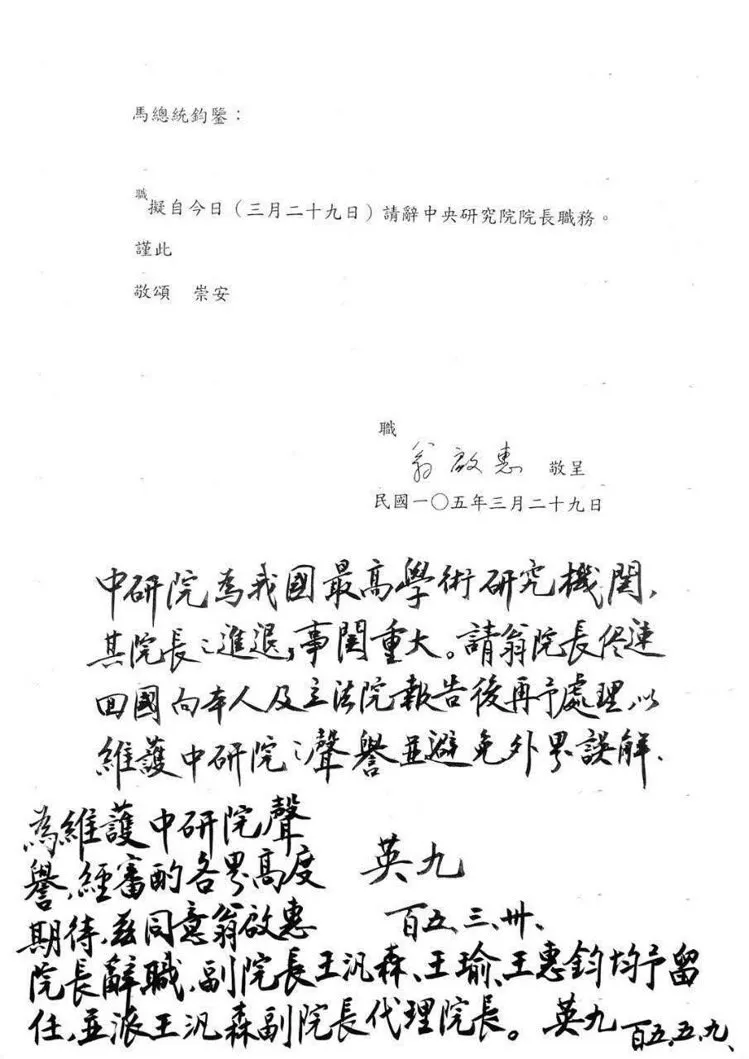 馬總統鈞鑒：
職擬自今日（三月二十九日）請辭中央研究院院長職務。
謹此
敬頌　崇安
職
翁啟惠　敬呈
民國一〇五年三月二十九日
中研院為我國最高學術研究機関，
其院長之進退，事関重大。請翁院長侭速
回國向本人及立法院報告後再予處理，以
維護中研院之聲譽並避免外界誤解、
英九
百五、三、卅、
為維護中研院聲
譽，經審酌各界高度
期待，茲同意翁啟惠
院長辭職，副院長王汎森、王瑜、王惠鈞均予留
任，並派王汎森副院長代理院長。英九 百五、五、九、